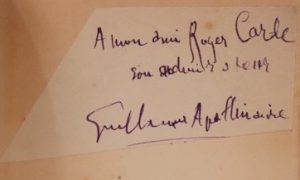 A mon ami Roger Carle
son admirateur
Guillaume Apollinaire